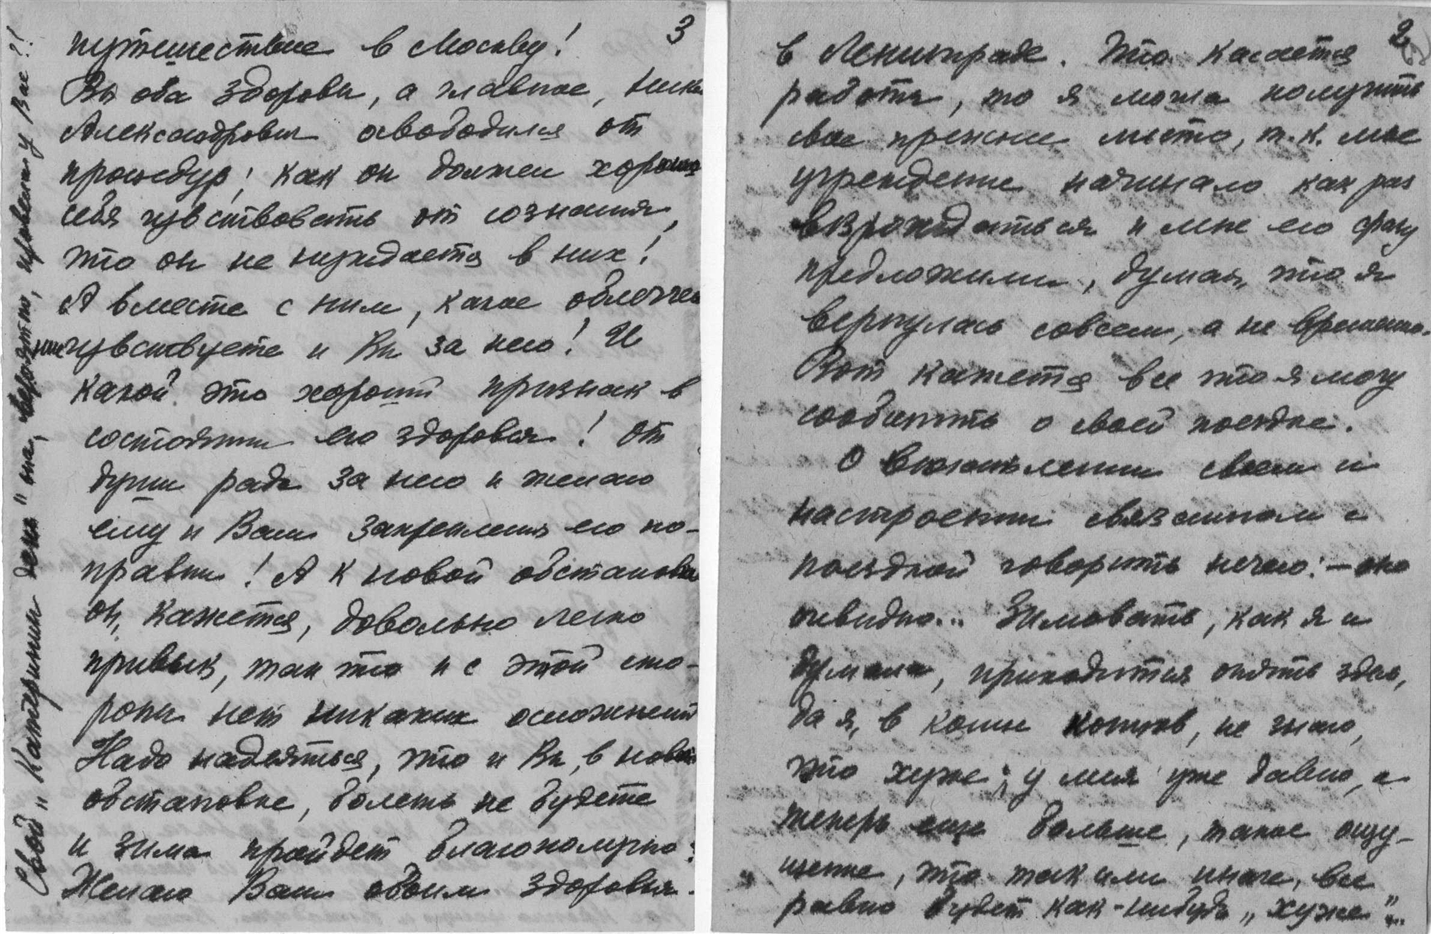 3
путешествие в Москву!
Вы оба здоровы, а главное,
Александрович освободился от
процедур! Как он должен хорошо
себя чувствовать от сознания,
что он не нуждается в них!
А вместе с ним, какое облегче
ние чувствуете и Вы за него! И
какой это хороший признак в
состоянии его здоровья! От
души рада за него и желаю
ему и Вам закрепления его по-
правки! А к новой обстановке
он, кажется, довольно легко
привык, так что и с этой сто-
роны нет никаких осложнений
Надо надеяться, что и Вы, в новой
обстановке, болеть не будете
и зима пройдет благополучно.
Желаю Вам обоим здоровья.
Свой „Катеринин день" она, вероятно, провела у Вас?!
2
в Ленинграде. Что касается
работы, то я могла получить
свое прежнее место, т.к. мое
учреждение начинало как раз
возрождаться и мне его сразу
предложили, думая, что я
вернулась совсем, а не временно.
Вот кажется все что я могу
сообщить о своей поездке.
О впечатлении своем и
настроении связанном с
поездкой говорить нечего: – оно
очевидно... Зимовать, как я и
думала, приходится опять здесь,
да я, в конце концов, не знаю,
что хуже; у меня уже давно, а
теперь еще больше, такое ощу-
щение, что так или иначе, все
равно будет как-нибудь „хуже"...